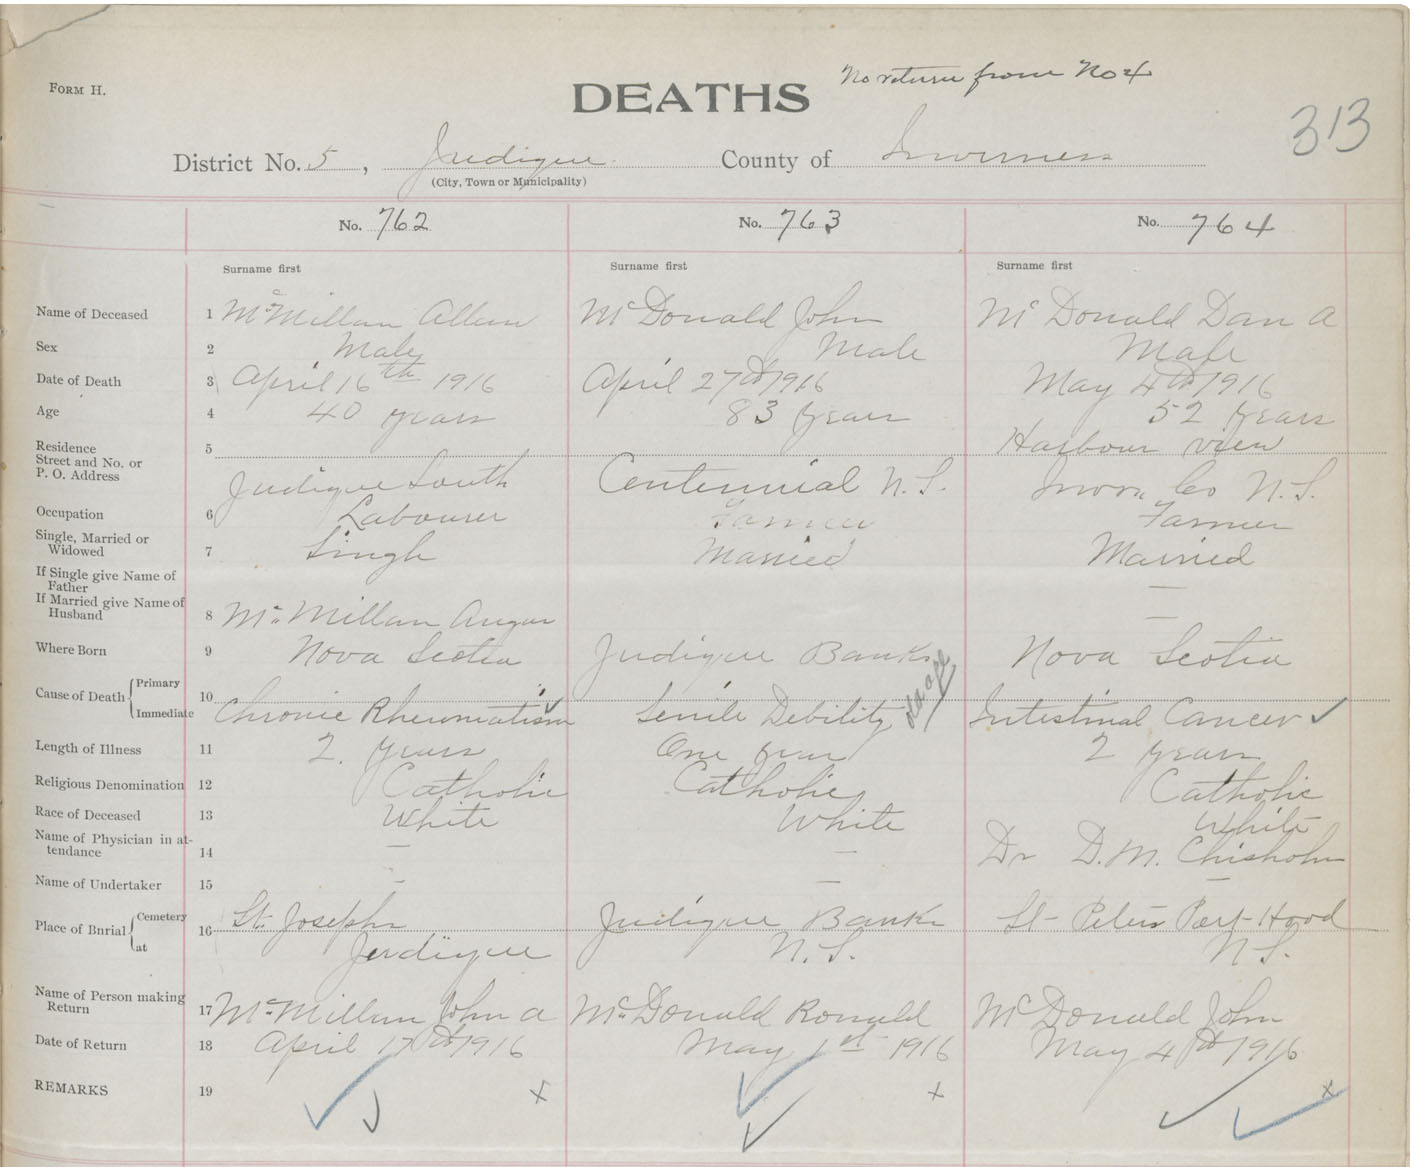 No return from No 4
FORM H.
DEATHS
313
District No. 5, Judique County of Inverness
(City, Town or Municipality)
No. 762 No. 763 No. 764
Surname first Surname first Surname first
Name of Deceased 1 McMillan Allan McDonald John McDonald Dan A
Sex 2 Male Male Male
Date of Death 3 April 16th 1916 April 27th 1916 May 4th 1916
Age 4 40 years 83 years 52 years
Residence 5 Harbour view
Street and No. or
P. O. Address Judique South Centennial N.S. Inver. Co N.S.
Occupation 6 Labourer Farmer Farmer
Single, Married or
Widowed 7 Single Married Married
If Single give Name of
Father —
If Married give Name of
Husband 8 McMillan Angus —
Where Born 9 Nova Scotia Judique Banks Nova Scotia
Cause of Death { Primary 10 old age
Immediate Chronic Rheumatism Senile Debility Intestinal Cancer ✓
Length of Illness 11 2 years One year 2 years
Religious Denomination 12 Catholic Catholic Catholic
Race of Deceased 13 White White White
Name of Physician in at-
tendance 14 — — Dr D.M. Chisholm
Name of Undertaker 15 — — —
Place of Burial { Cemetery 16 St. Josephs Judique Banks St Peters Port Hood
at Judique N.S. N.S.
Name of Person making
Return 17 McMillan John A McDonald Ronald McDonald John
Date of Return 18 April 17th 1916 May 1st 1916 May 4th 1916
REMARKS 19 x x x